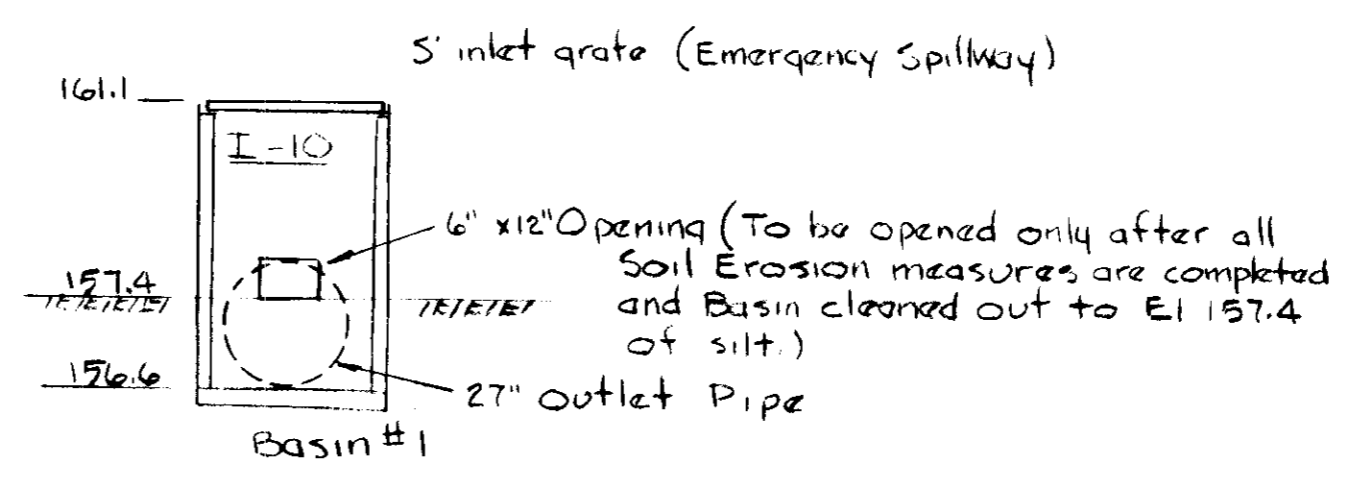 5' inlet grate (Emergency Spillway)
161.1
I-10
6" x12" Opening (To be opened only after all
Soil Erosion measures are completed
157.4
and Basin cleaned out to El 157.4
of silt.)
156.6
27" Outlet Pipe
Basin #1